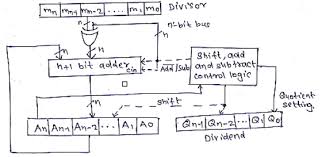 mn mn-1 mn-2 .... m1 m0 Divisor
n-bit bus
n
n
n+1 bit adder
Cin
Add/Sub
Shift, add
and subtract
control logic
n
shift
Quotient
setting.
An An-1 An-2 ... A1 A0
Qn-1 Qn-2 ... Q1 Q0
Dividend